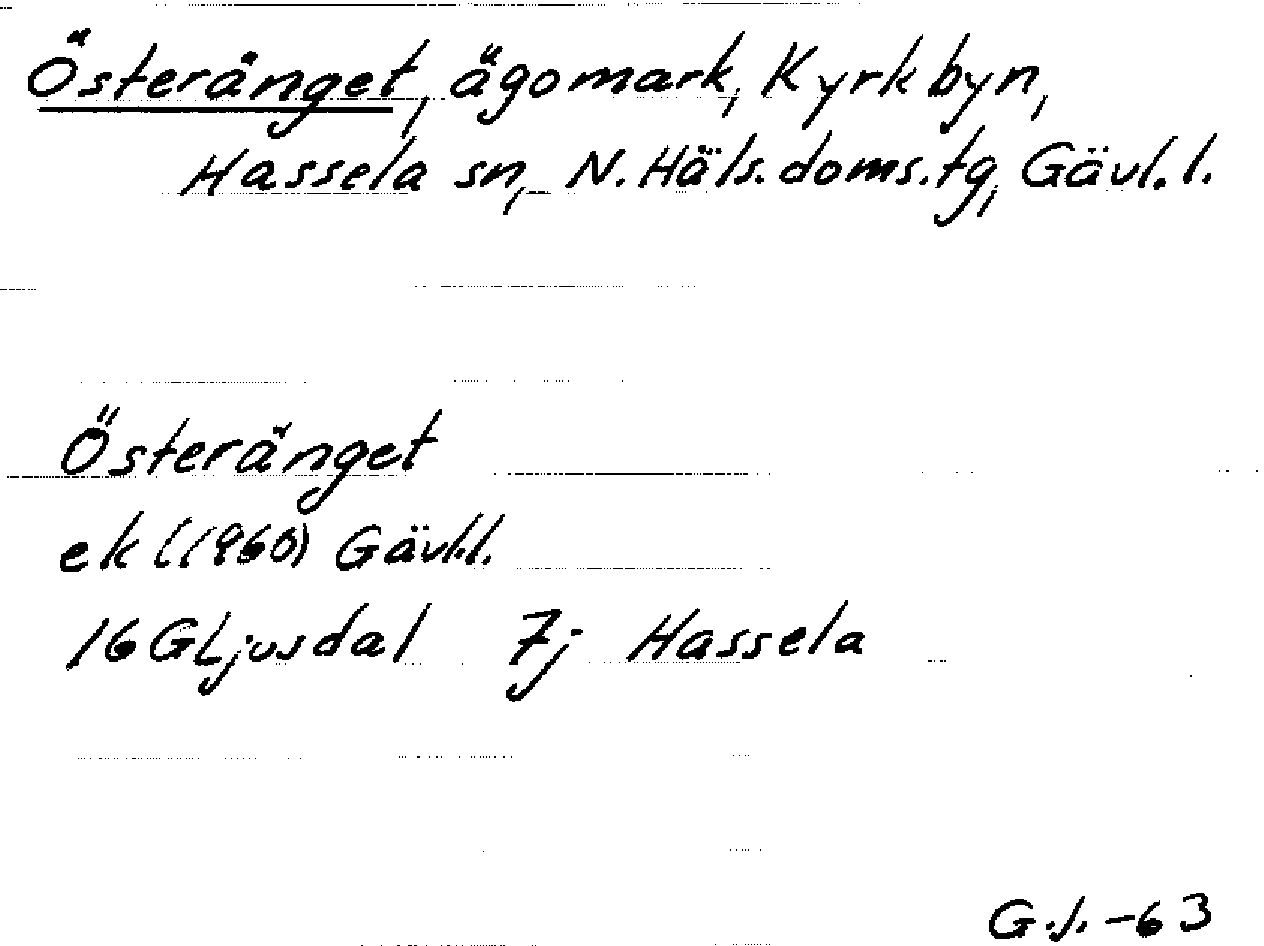 Österänget, ägomark, Kyrkbyn,
Hassela sn, N. Häls. doms. tg, Gävl. l.
Österänget
ek (1960) Gävl.l.
16G Ljusdal 7j Hassela
G.J. -63